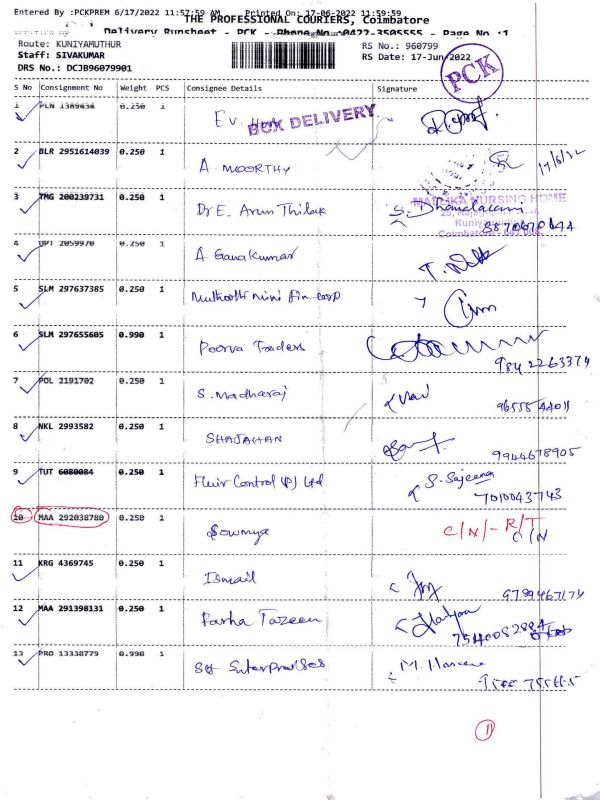 Entered By :PCKPREM 6/17/2022 11:57:59 AM Printed On: 17-06-2022 11:59:59
THE PROFESSIONAL COURIERS, Coimbatore
Delivery Runsheet - PCK - Phone No :0422-3505555 - Page No :1
Route: KUNIYAMUTHUR RS No.: 960799
Staff: SIVAKUMAR RS Date: 17-Jun-2022
DRS No.: DCJB96079901
PCK
S No Consignment No Weight PCS Consignee Details Signature
1 PLN 1389636 0.250 1
BOX DELIVERY
2 BLR 2951614039 0.250 1 A. MOORTHY 17/6/22
3 TMG 200239731 0.250 1 Dr E. Arun Thilak
MALLIKA NURSING HOME
Kuniyamuthur
Coimbatore
4 2059970 0.250 1 A Gana Kumar
5 SLM 297637385 0.250 1 Muthooth mini fin corp
6 SLM 297655605 0.990 1 Poorva Traders 9842263374
7 POL 2191702 0.250 1 S. Madharaj
8 NKL 2993582 0.250 1 SHAJAHAN 9944678905
9 TUT 6080084 0.250 1 Fluir Control (P) Ltd S. Sajeena
7010043743
10 MAA 292038780 0.250 1 Sowmya C/N/- R/T
C/N
11 KRG 4369745 0.250 1 Ismail 9789467174
12 MAA 291398131 0.250 1 Farha Tazeen
13 PRO 13338779 0.990 1 Enterprises
11